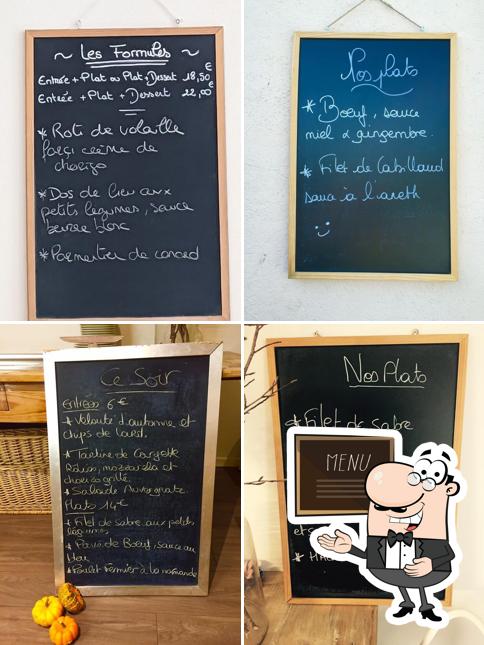 ~ Les Formules ~
Entrée + Plat ou Plat + Dessert 18,50 €
Entrée + Plat + Dessert 22,00 €
* Roti de volaille
farçi crème de
chorizo
* Dos de lieu aux
petits légumes, sauce
beurre blanc
* Parmentier de canard
Nos plats
* Boeuf, sauce
miel & gingembre.
* Filet de Cabillaud
sauce à l'aneth
Ce Soir
Entrées 6 €
* Velouté d'automne et
chips de lard.
* Tartine de Courgette
mozzarella et
chorizo grillé.
* Salade Auvergnate.
Plats 14 €
* Filet de sabre aux petits
légumes
* Pavé de Boeuf, sauce au
* Poulet fermier à la normande
Nos Plats
* Filet de sabre
MENU